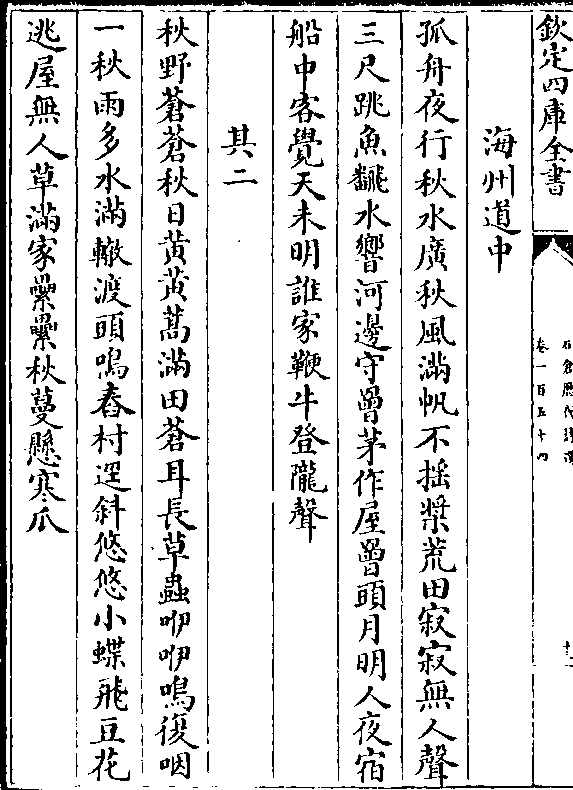 欽定四庫全書
石倉歷代詩選
卷一百五十四
海州道中
孤舟夜行秋水廣秋風滿帆不搖槳荒田寂寂無人聲
三尺跳魚翻水響河邊守罾茅作屋罾頭月明人夜宿
船中客覺天未明誰家鞭牛登隴聲
其二
秋野蒼蒼秋日黃黃蒿滿田蒼耳長草蟲咿咿鳴復咽
一秋雨多水滿轍渡頭鳴舂村逕斜悠悠小蝶飛豆花
逃屋無人草滿家纍纍秋蔓懸寒瓜